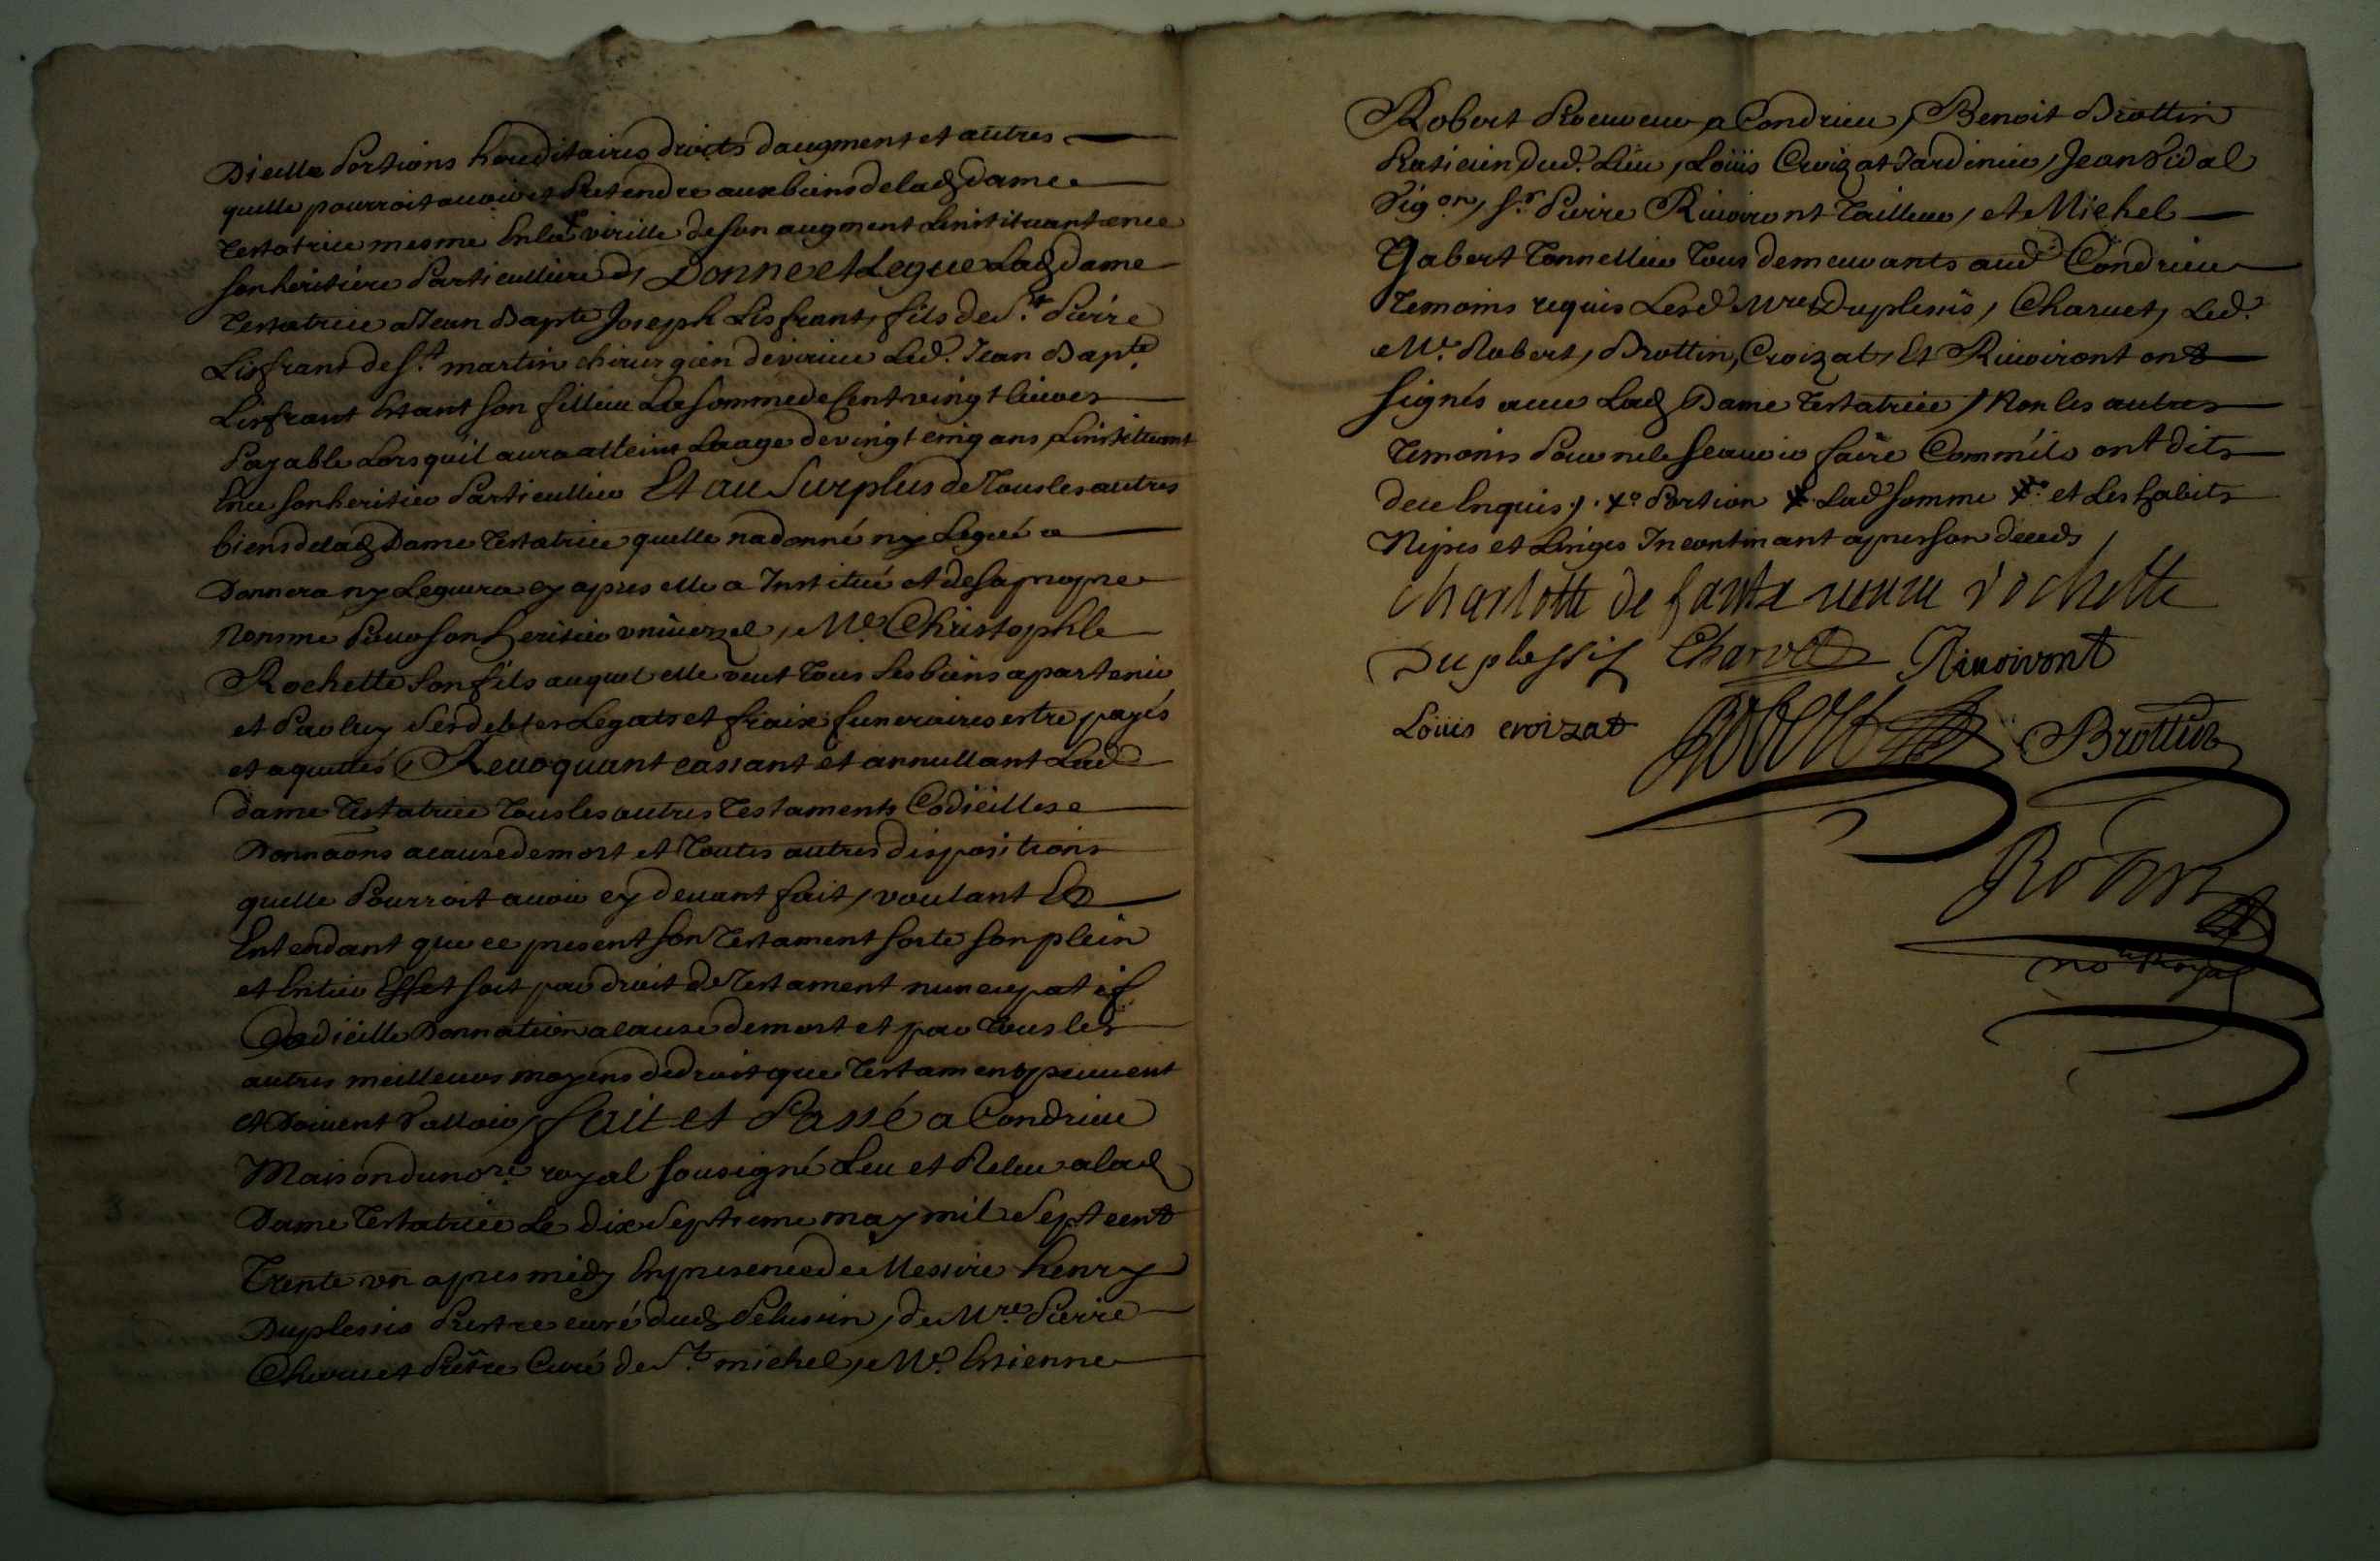 Dicelle Portions hereditaires droits daugment et autres
quelle pourroit avoir et Pretendre aux biens de lad. dame
Testatrice mesme En la virille de son augment Linstituant en ce
son heritiere Particulliere Donne et Legue Lad. dame
Testatrice a Jean Bapte Joseph Lisfrant, fils de Sr. Pierre
Lisfrant de St. martin chirurgien de virieu Led. Jean Bapte.
Lisfrant Estant son filleu La somme de Cent vingt livres
Payable Lors quil aura atteint Laage de vingt cinq ans, Linstituant
En ce son heritier Particullier Et au Surplus de Tous les autres
biens de lad. Dame Testatrice quelle na donné ny Legué a
Donnera ny Leguera cy apres elle a Institué et de sa propre
Nomme Pour son heritier universel, Me. Christophle
Rochette son fils auquel elle veut tous ses biens apartenir
et Par luy Ses debtes Legats et fraix funeraires estre payés
et aquittés, Revoquant cassant et annullant Lad.
dame Testatrice Tous les autres Testaments Codicilles
Donnaons a cause de mort et Toutes autres dispositions
quelle Pourroit avoir cy devant fait, voulant Et
Entendant que ce present son Testament sorte son plein
et Entier Effet soit par droit de Testament nuncupatif
Codicille Donnation a cause de mort et par Tous les
autres meilleurs moyens de droit que Testaments peuvent
et Doivent Valloir, fait et Passé a Condrieu
Maison du nore. royal sousigné Leu et Releu a lad.
Dame Testatrice Le dix Septieme may mil Sept cent
Trente un apres midy En presence de Messire henry
Duplessis Prestre curé dud. Pelussin, de Mre. Pierre
Charvet Prêtre Curé de St. michel, Me. Estienne
Robert Procureur a Condrieu, Benoit Brottin
Praticien dud. Lieu, Loüis Croizat Jardinier, Jean Vidal
Vigon., Sr. Pierre Rivoiront Tailleur, et Michel
Gabert Tonnellier Tous demeurants aud. Condrieu
Temoins requis Lesd. Mres Duplessis, Charvet, Led.
Me. Robert, Brottin, Croizat, Et Rivoiront ont
signés avec Lad. Dame Testatrice, Non les autres
Temoins Pour ne le scavoir faire Comm'ils ont dits
de ce Enquis, Portion Lad. somme et Les habits
Nipes et Linges Incontinant apres son deceds
Charlotte de veuve rochette
Duplessis Charvet Rivoiront
Loüis croizat Robert Brottin
Robert
nore Royal